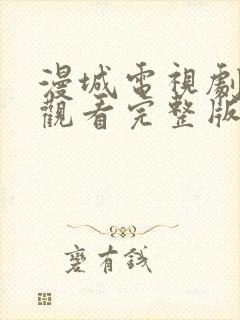 漫城電視劇
觀看完整版
麼有錢